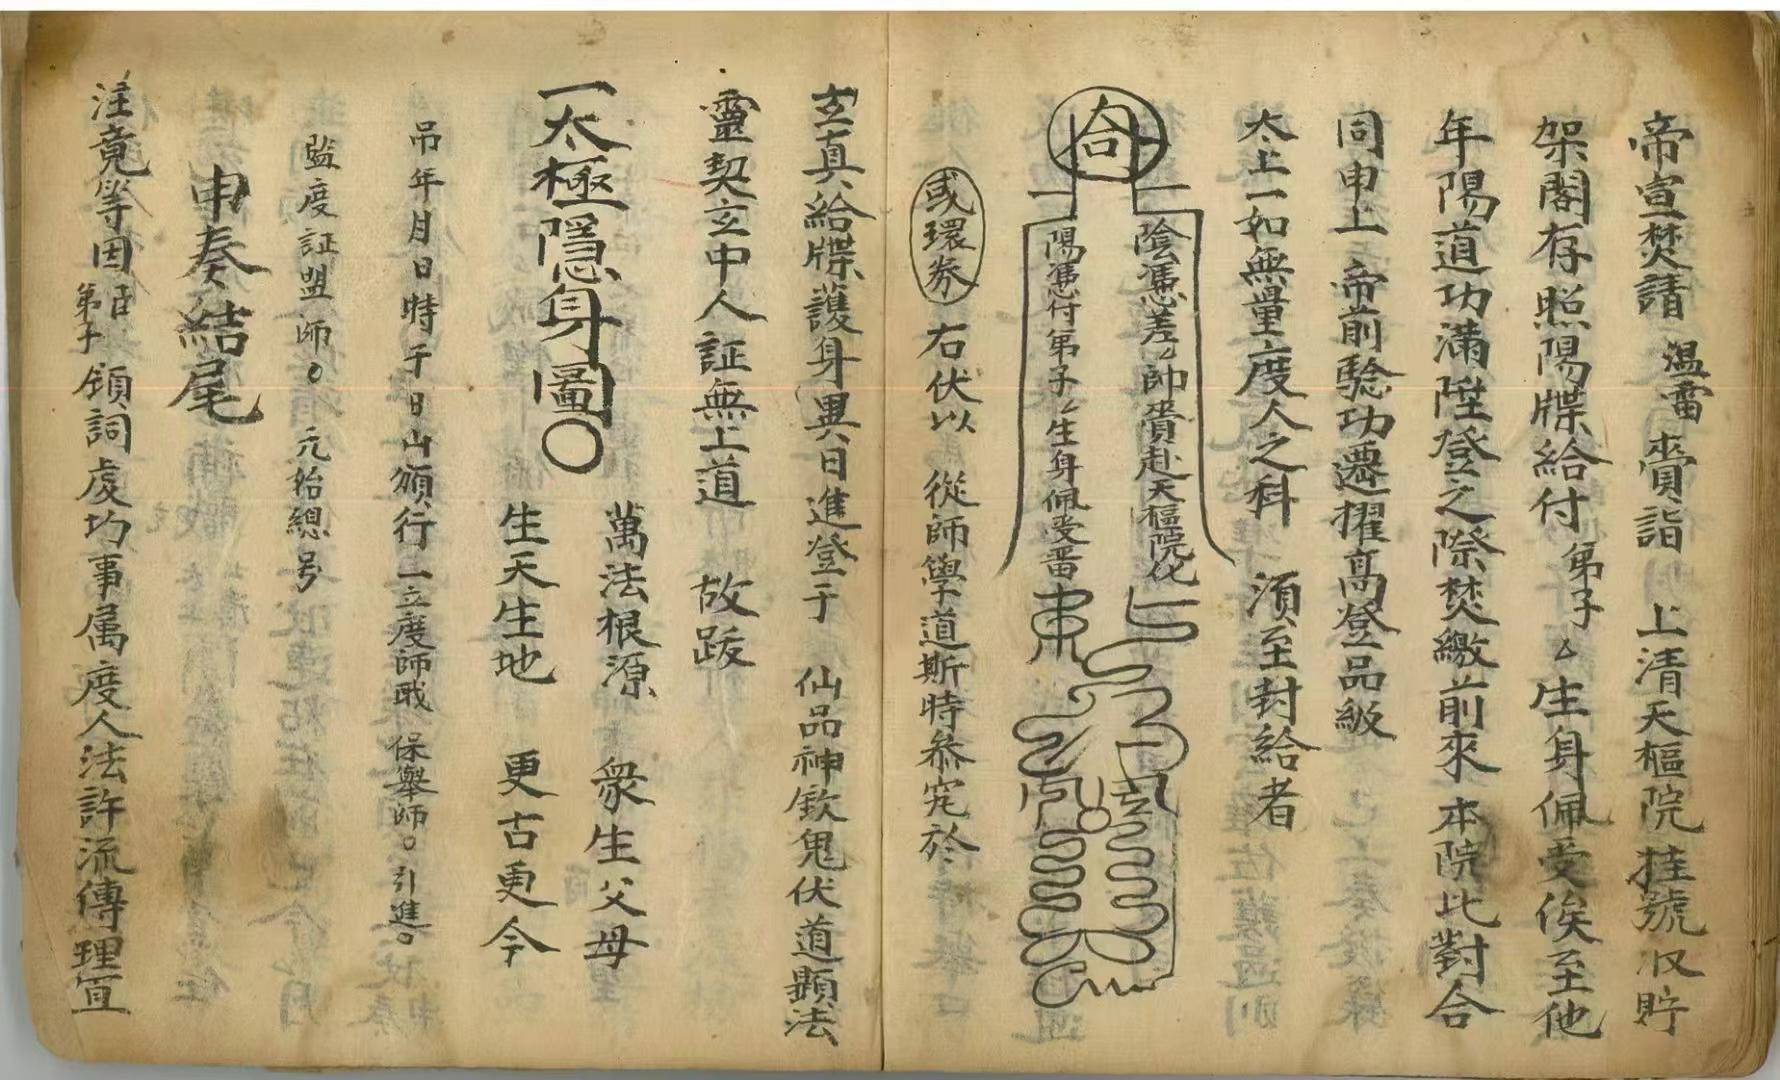 帝宣焚請 温雷 賫詣 上清天樞院挂號收貯
架閣存照陽牒給付 弟子 △生身佩受俟至他
年陽道功滿陞登之際焚繳前來本院比對合
同申上 帝前驗功遷擢高登品級
太上一如無量度人之科 須至封給者
合同
陰憑差△帥賫赴天樞院化
陽憑付弟子△生身佩受畨
或環券 右伏以 從師學道斯時叅究於
玄真給牒護身異日進登于 仙品神欽鬼伏道顯法
靈契玄中人証無上道 故跋
一太極隱身圖〇
萬法根源 衆生父母
生天生地 更古更今
吊年月日時于日山頒行一立度師戝 保舉師〇引進〇
監度証盟師〇 元始總号
申奏結尾
注竟等因 臣弟子 領詞虔昀事属度人法許流傳理宜